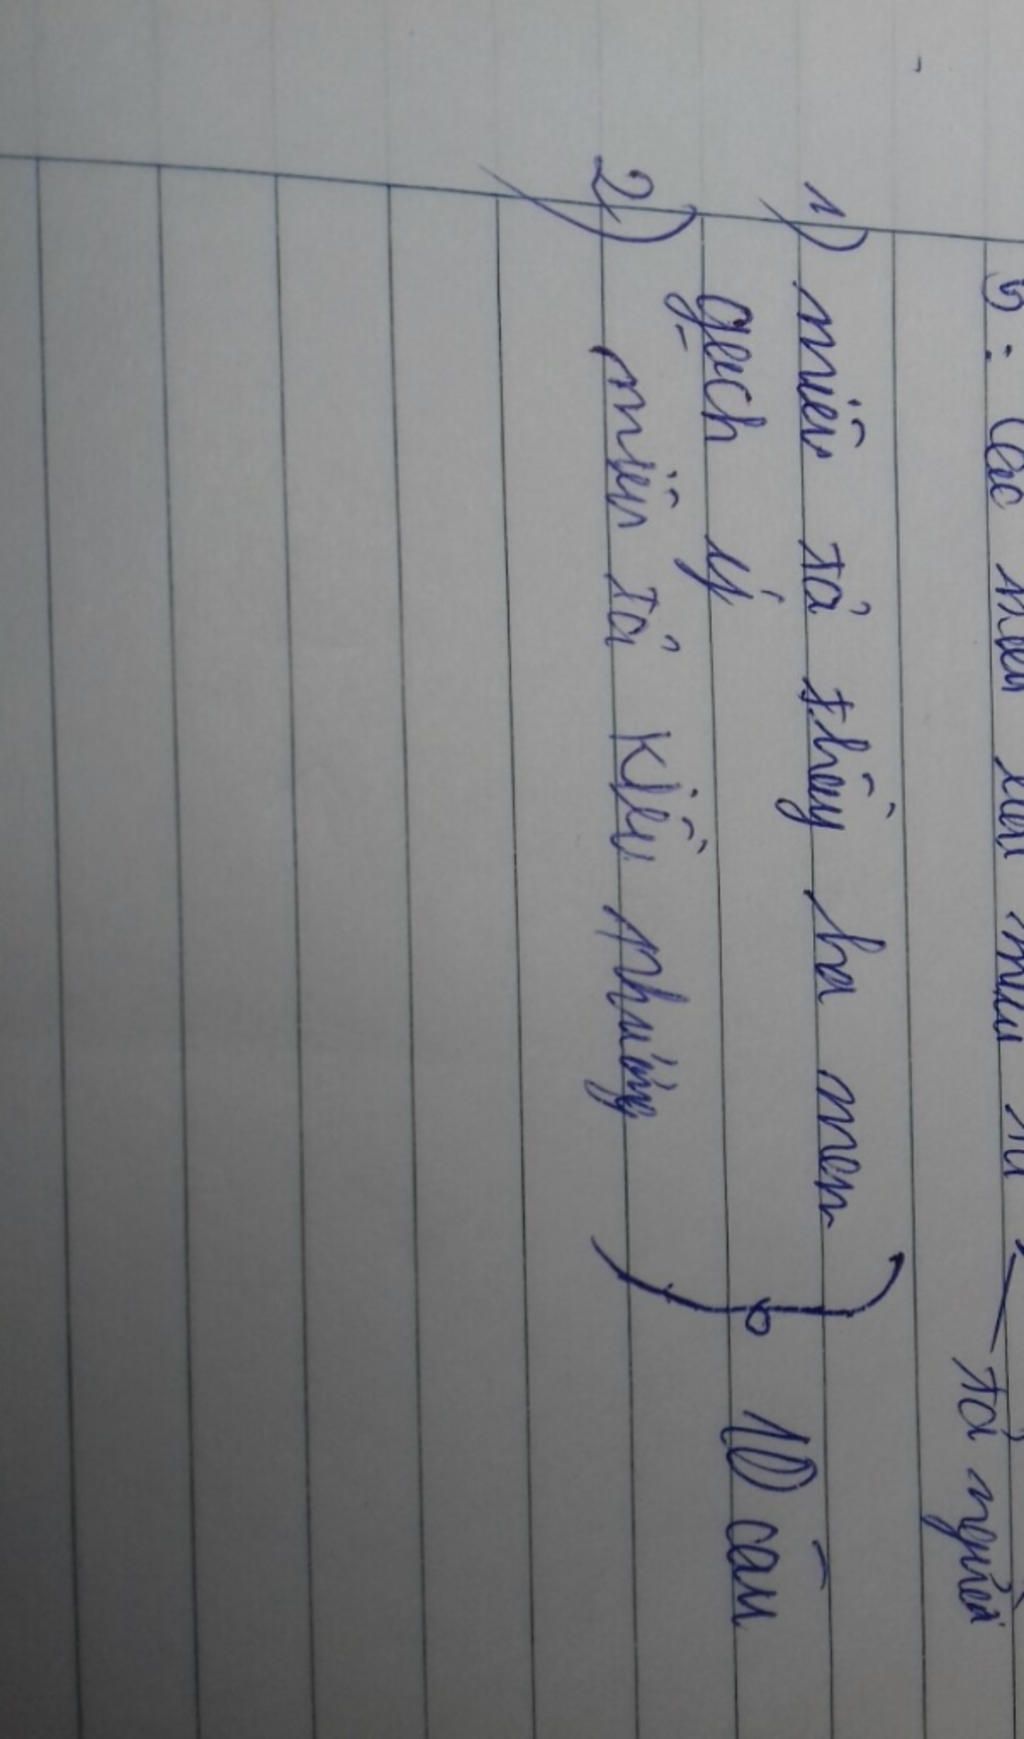 tả người
1) miêu tả thầy ha men
gạch ý
2) miêu tả Kiều phương
10 câu